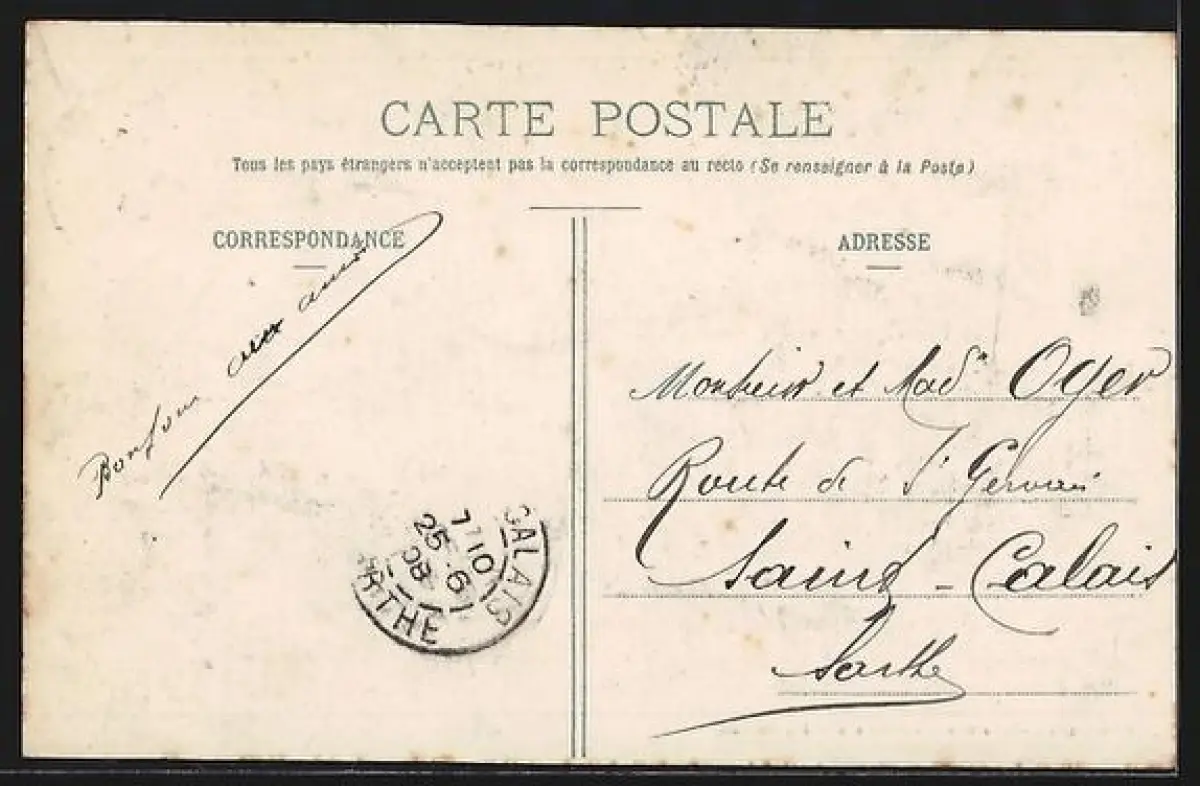 CARTE POSTALE
Tous les pays étrangers n'acceptent pas la correspondance au recto (Se renseigner à la Poste)
CORRESPONDANCE
Bonjour aux amis
CALAIS
7 10
25 6
08
RTHE
ADRESSE
Monsieur et Mad Oger
Route de St Gervais
Saint-Calais
Sarthe